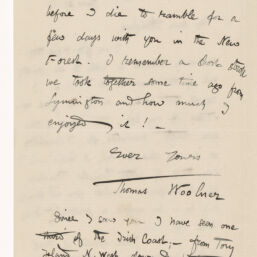 before I die to ramble for a
few days with you in the New
Forest. I remember a little stroll
we took together some time ago from
Lymington and how much I
enjoyed it! —
Ever Yours
Thomas Woolner
Since I saw you I have seen one
more of the Irish Coast, — from Tory
Island N. West